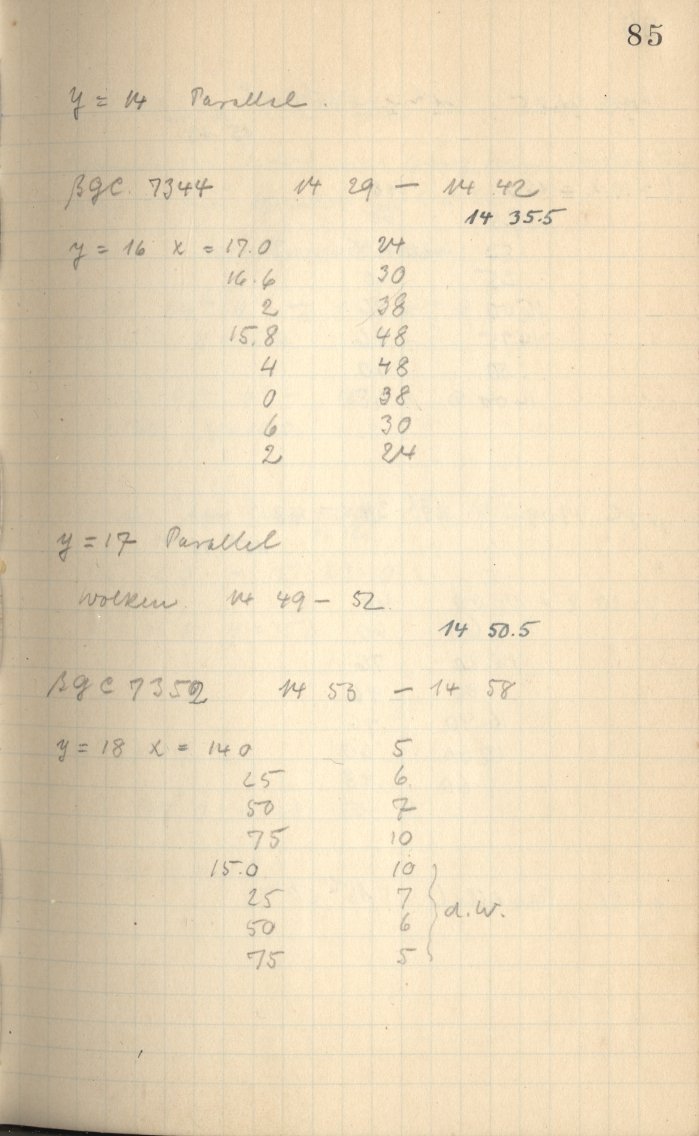 85
y = 14 Parallel.
BGC. 7344 14 29 — 14 42
14 35.5
y = 16 x = 17.0 24
16.6 30
2 38
15.8 48
4 48
0 38
6 30
2 24
y = 17 Parallel
Wolken. 14 49 — 52
14 50.5
BGC 7352 14 53 — 14 58
y = 18 x = 14 0 5
25 6
50 7
75 10
15.0 10
25 7
50 6
75 5
d.W.